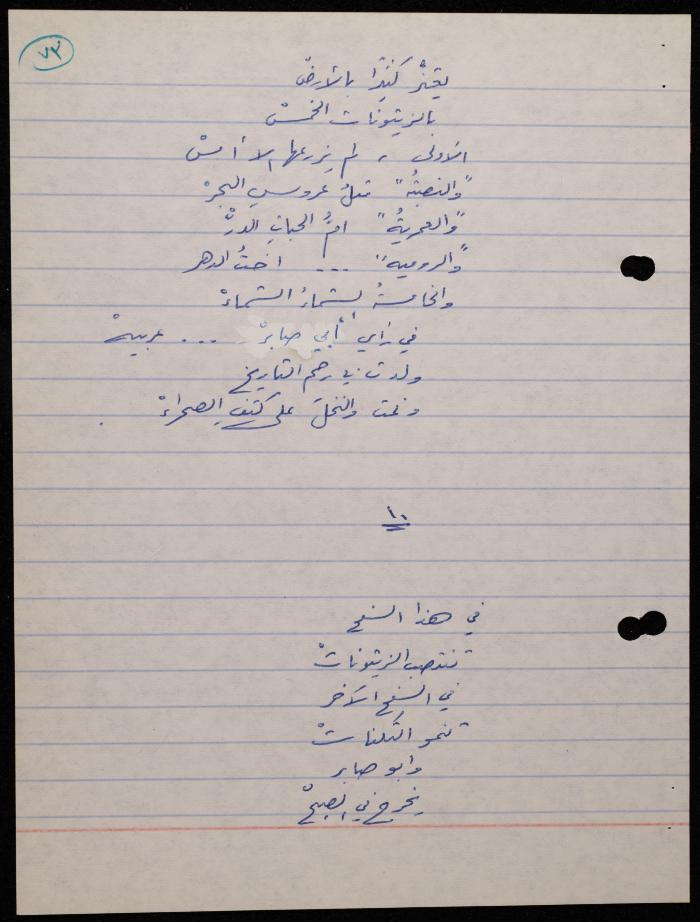 ٧٣
يعتزُّ كثيرًا بالأرضْ
بالزيتونات الخمسْ
الأولى ، لم يزرعها الا أمسْ
"والنصبَّةُ" مثلُ عروسِ البحرْ
"والعمريَّةُ" امُّ الحباتِ الدرّْ
"والروميه" ... اختُ الدهر
والخامسةُ الشماءْ
في رأي أبي صابرْ ... عربيهْ
ولدت في رحم التاريخ
ونمت والنخلَ على كتفِ الصحراءْ
١٠
في هذا السفح
تنتصب الزيتوناتْ
في السفح الآخر
تنمو الثكناتْ
وابو صابر
يخرج في الصبحْ